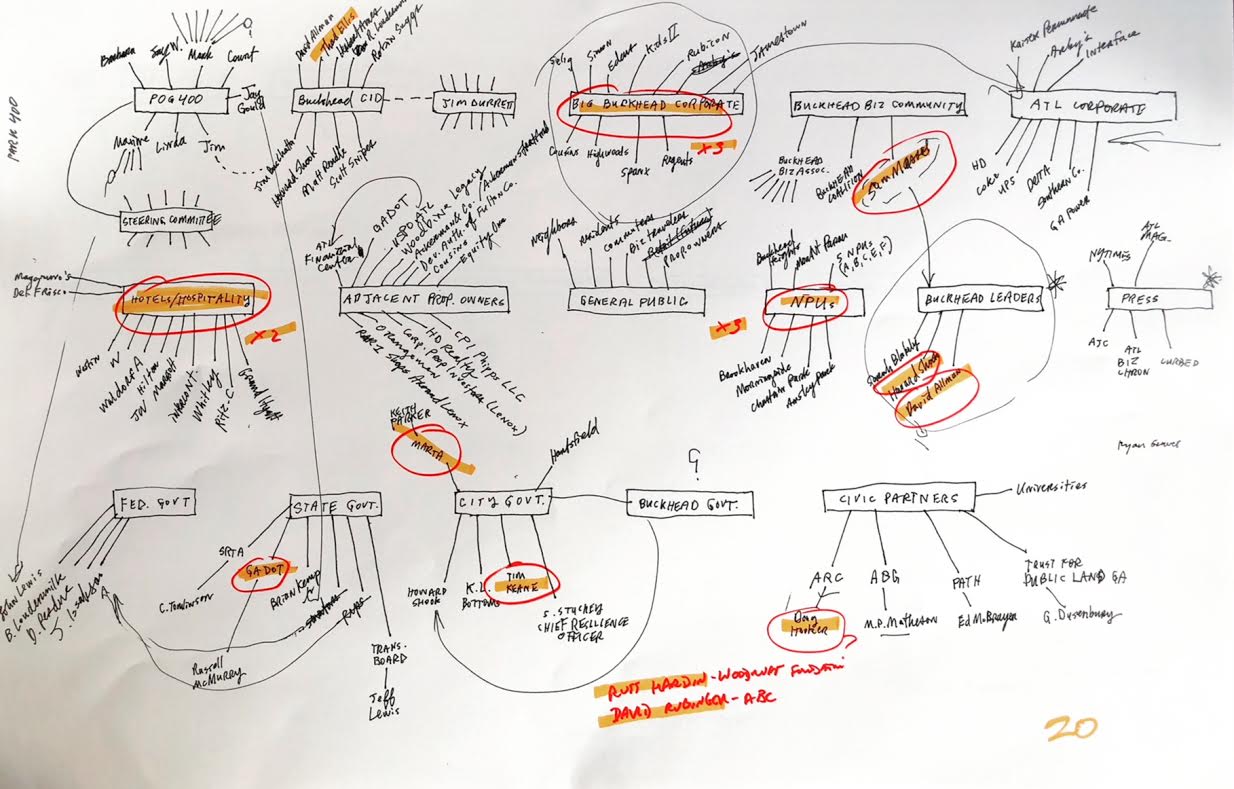 PARK 400
Barbara
Jay W.
Mack
Court
?
POG400
Jay
Gould
Maxine
Linda
Jim
STEERING COMMITTEE
David Allman
Thad Ellis
Robin Suggs
Buckhead CID
Jim Durrett
Howard Shook
Scott Sniper
Selig
Simon
Edens
Kids II
Rubicon
Jamestown
BIG BUCKHEAD CORPORATE
x3
Cousins
Highwoods
Spanx
Regents
BUCKHEAD BIZ COMMUNITY
BUCKHEAD
BIZ ASSOC.
BUCKHEAD
COALITION
Sam Massell
Kaiser Permanente
Arby's
Interface
ATL CORPORATE
HD
Coke
UPS
DELTA
Southern Co.
GA POWER
Maggiano's
Del Frisco
HOTELS/HOSPITALITY
x2
Westin
W
Waldorf A
Hilton
JW Marriott
InterconT.
Whitley
Ritz-C
Grand Hyatt
ATL
Financial
Center
GADOT
Dev. Auth. of Fulton Co.
Cousins
Equity One
ADJACENT PROP. OWNERS
CPI Phipps LLC
HD Realty
Corp. Prop. Investors (Lenox)
Neighbors
Residents
Commuters
Biz travelers
PROP. OWNERS
GENERAL PUBLIC
x3
Buckhead
Heights
5 NPUs
(A, B, C, E, F)
NPUs
Brookhaven
Morningside
Chastain Park
Ansley Park
BUCKHEAD LEADERS
Sarah Blakely
David Allman
NYTimes
ATL
MAG.
PRESS
AJC
ATL
BIZ
CHRON
CURBED
KEITH
PARKER
MARTA
Hartsfield
FED. GOVT
John Lewis
B. Loudermilk
D. Perdue
J. Isakson
STATE GOVT.
SRTA
GADOT
C. Tomlinson
Russell
McMurry
Brian Kemp
TRANS.
BOARD
Jeff
Lewis
CITY GOVT.
HOWARD
SHOOK
K.L.
BOTTOMS
TIM
KEANE
S. STUCKEY
CHIEF RESILIENCE
OFFICER
?
BUCKHEAD GOVT.
CIVIC PARTNERS
Universities
ARC
Doug
Hooker
?
ABG
M.P. Matheson
PATH
Ed McBrayer
TRUST FOR
PUBLIC LAND GA
G. Dusenbury
RUSS HARDIN - WOODRUFF
DAVID RUBINGER - ABC
20